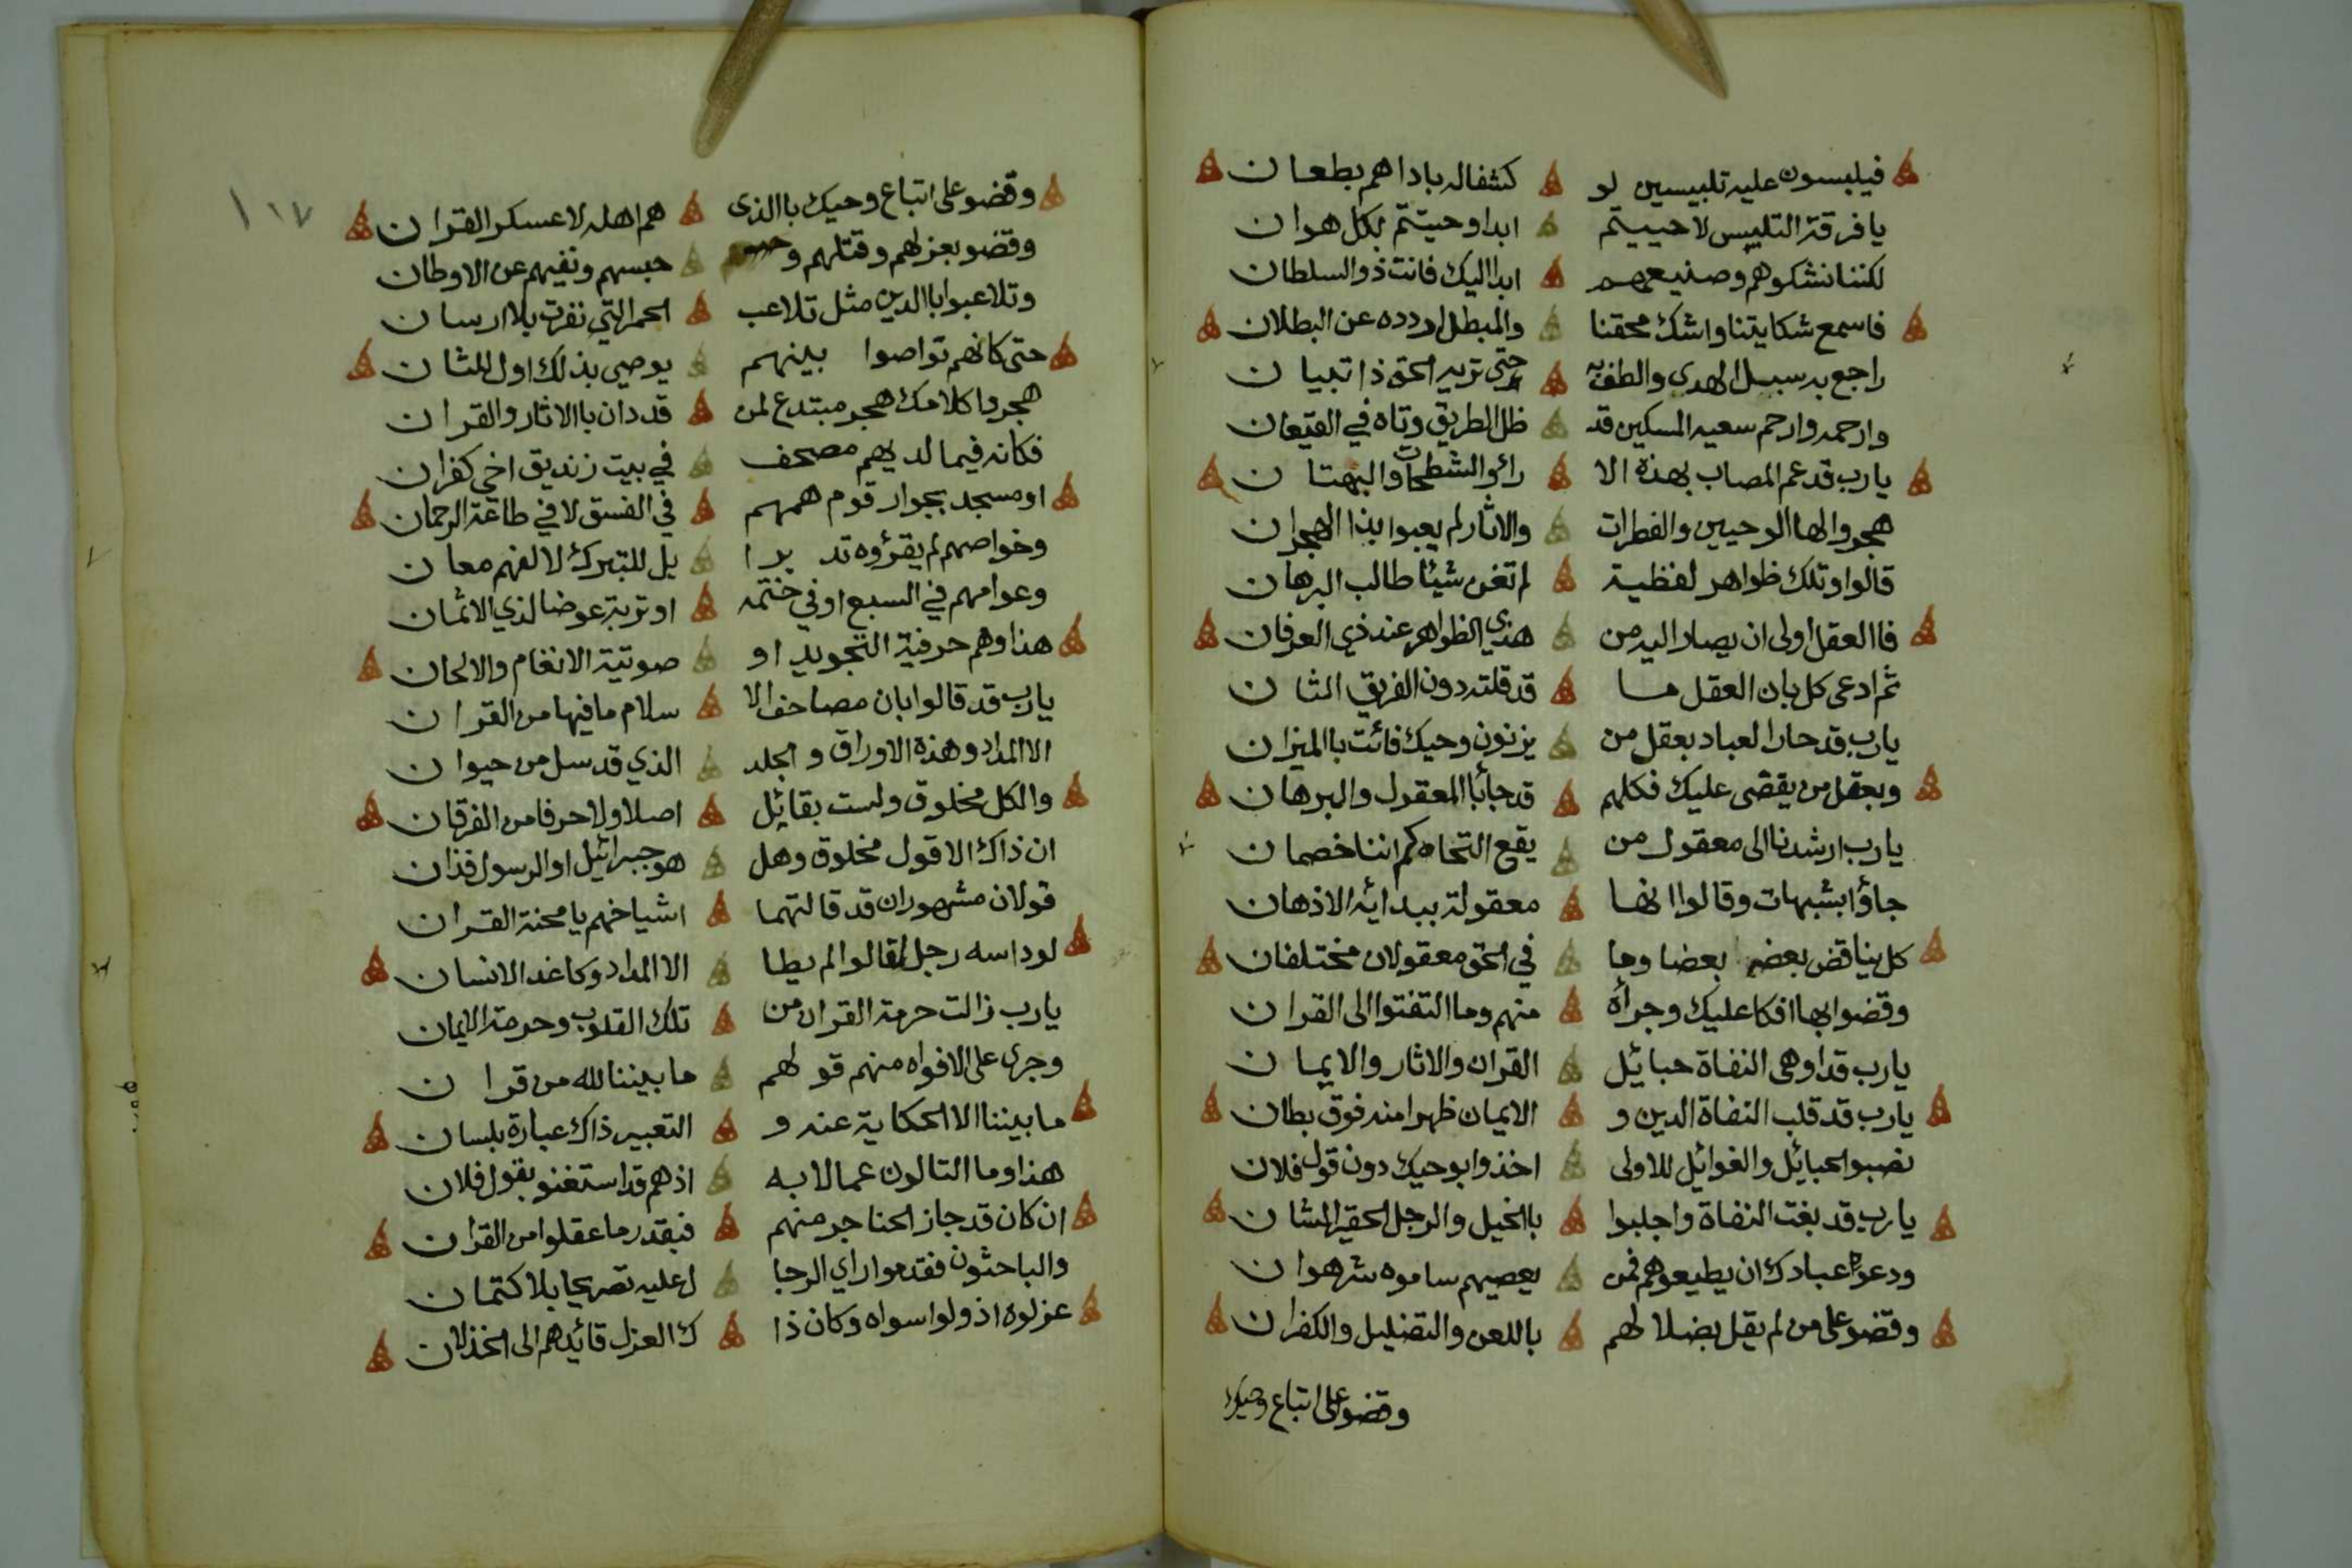 فيلبسون عليه تلبيسين لو كشفا له بادا هم بطعان
يا فرقة التلبيس لا حييتم ابدا وحيتم بكل هوان
لكننا نشكوهم وصنيعهم ابدا اليك فانت ذو السلطان
فاسمع شكايتنا واشك محقنا والمبطل اردده عن البطلان
راجع به سبل الهدى والطف به حتى تريه الحق ذا تبيان
وارحمه وارحم سعيه المسكين قد ظل الطريق وتاه في القيعان
يا رب قد عم المصاب بهذه الا رائ والشطحات والبهتان
هجروا لها الوحيين والفطرات والاثار لم يعبوا بذا الهجران
قالوا وتلك ظواهر لفظية لم تغن شيئا طالب البرهان
فا العقل اولى ان يصار اليه من هذي الظواهر عند ذي العرفان
ثم ادعى كل بان العقل ما قد قلته دون الفريق الثان
يا رب قد حار العباد بعقل من يزنون وحيك فائت با الميزان
وبعقل من يقضى عليك فكلهم قد جا با المعقول والبرهان
يا رب ارشدنا الى معقول من يقع التحاكم اننا خصمان
جاؤا بشبهات وقالوا انها معقولة ببدائه الاذهان
كل يناقض بعضه بعضا وما في الحق معقولان مختلفان
وقضوا بها افكا عليك وجرأة منهم وما التفتوا الى القران
يا رب قد اوهى النفاة حبائل القران والاثار والايمان
يا رب قد قلب النفاة الدين و الايمان ظهرا منه فوق بطان
نصبوا الحبائل والغوائل للاولى اخذوا بوحيك دون قول فلان
يا رب قد بغت النفاة واجلبوا با الخيل والرجل الحقير الشان
ودعوا عبادك ان يطيعوهم فمن يعصيهم ساموه شر هوان
وقضو على من لم يقل بضلالهم باللعن والتضليل والكفران
وقضو على اتباع وحيك
١١٧
وقضو على اتباع وحيك با الذي هم اهله لا عسكر القران
وقضو بعزلهم وقتلهم و حبسهم ونفيهم عن الاوطان
وتلاعبوا با الدين مثل تلاعب الحمر التي نفرت بلا ارسان
حتى كانهم تواصوا بينهم يوصي بذلك اول للثان
هجروا كلامك هجر مبتدع لمن قد دان با الاثار والقران
فكانه فيما لديهم مصحف في بيت زنديق اخي كفران
او مسجد بجوار قوم همهم في الفسق لا في طاعة الرحمان
وخواصهم لم يقرؤه تدبرا بل للتبرك لا لفهم معان
وعوامهم في السبع او في ختمه او تربة عوضا لذي الاثمان
هذا وهم حرفية التجويد او صوتية الانغام والالحان
يا رب قد قالوا بان مصاحف الا سلام ما فيها من القران
الا المداد وهذه الاوراق و الجلد الذي قد سل من حيوان
والكل مخلوق ولست بقائل اصلا ولا حرفا من الفرقان
ان ذاك الا قول مخلوق وهل هو جبرائيل او الرسول فذان
قولان مشهوران قد قالتهما اشياخهم يا محنة القران
لو داسه رجل لقالوا لم يطا الا المداد وكاغد الانسان
يا رب زالت حرمة القران من تلك القلوب وحرمة الايمان
وجرى على الافواه منهم قولهم ما بيننا لله من قران
ما بيننا الا الحكاية عنه و التعبير ذاك عبارة بلسان
هذا وما التالون عمالا به اذ هم قد استغنو بقول فلان
ان كان قد جاز الحناجر منهم فبقدر ما عقلوا من القران
والباحثون فقدموا راي الرجا ل عليه تصريحا بلا كتمان
عزلوه اذ ولوا سواه وكان ذا ك العزل قائدهم الى الخذلان